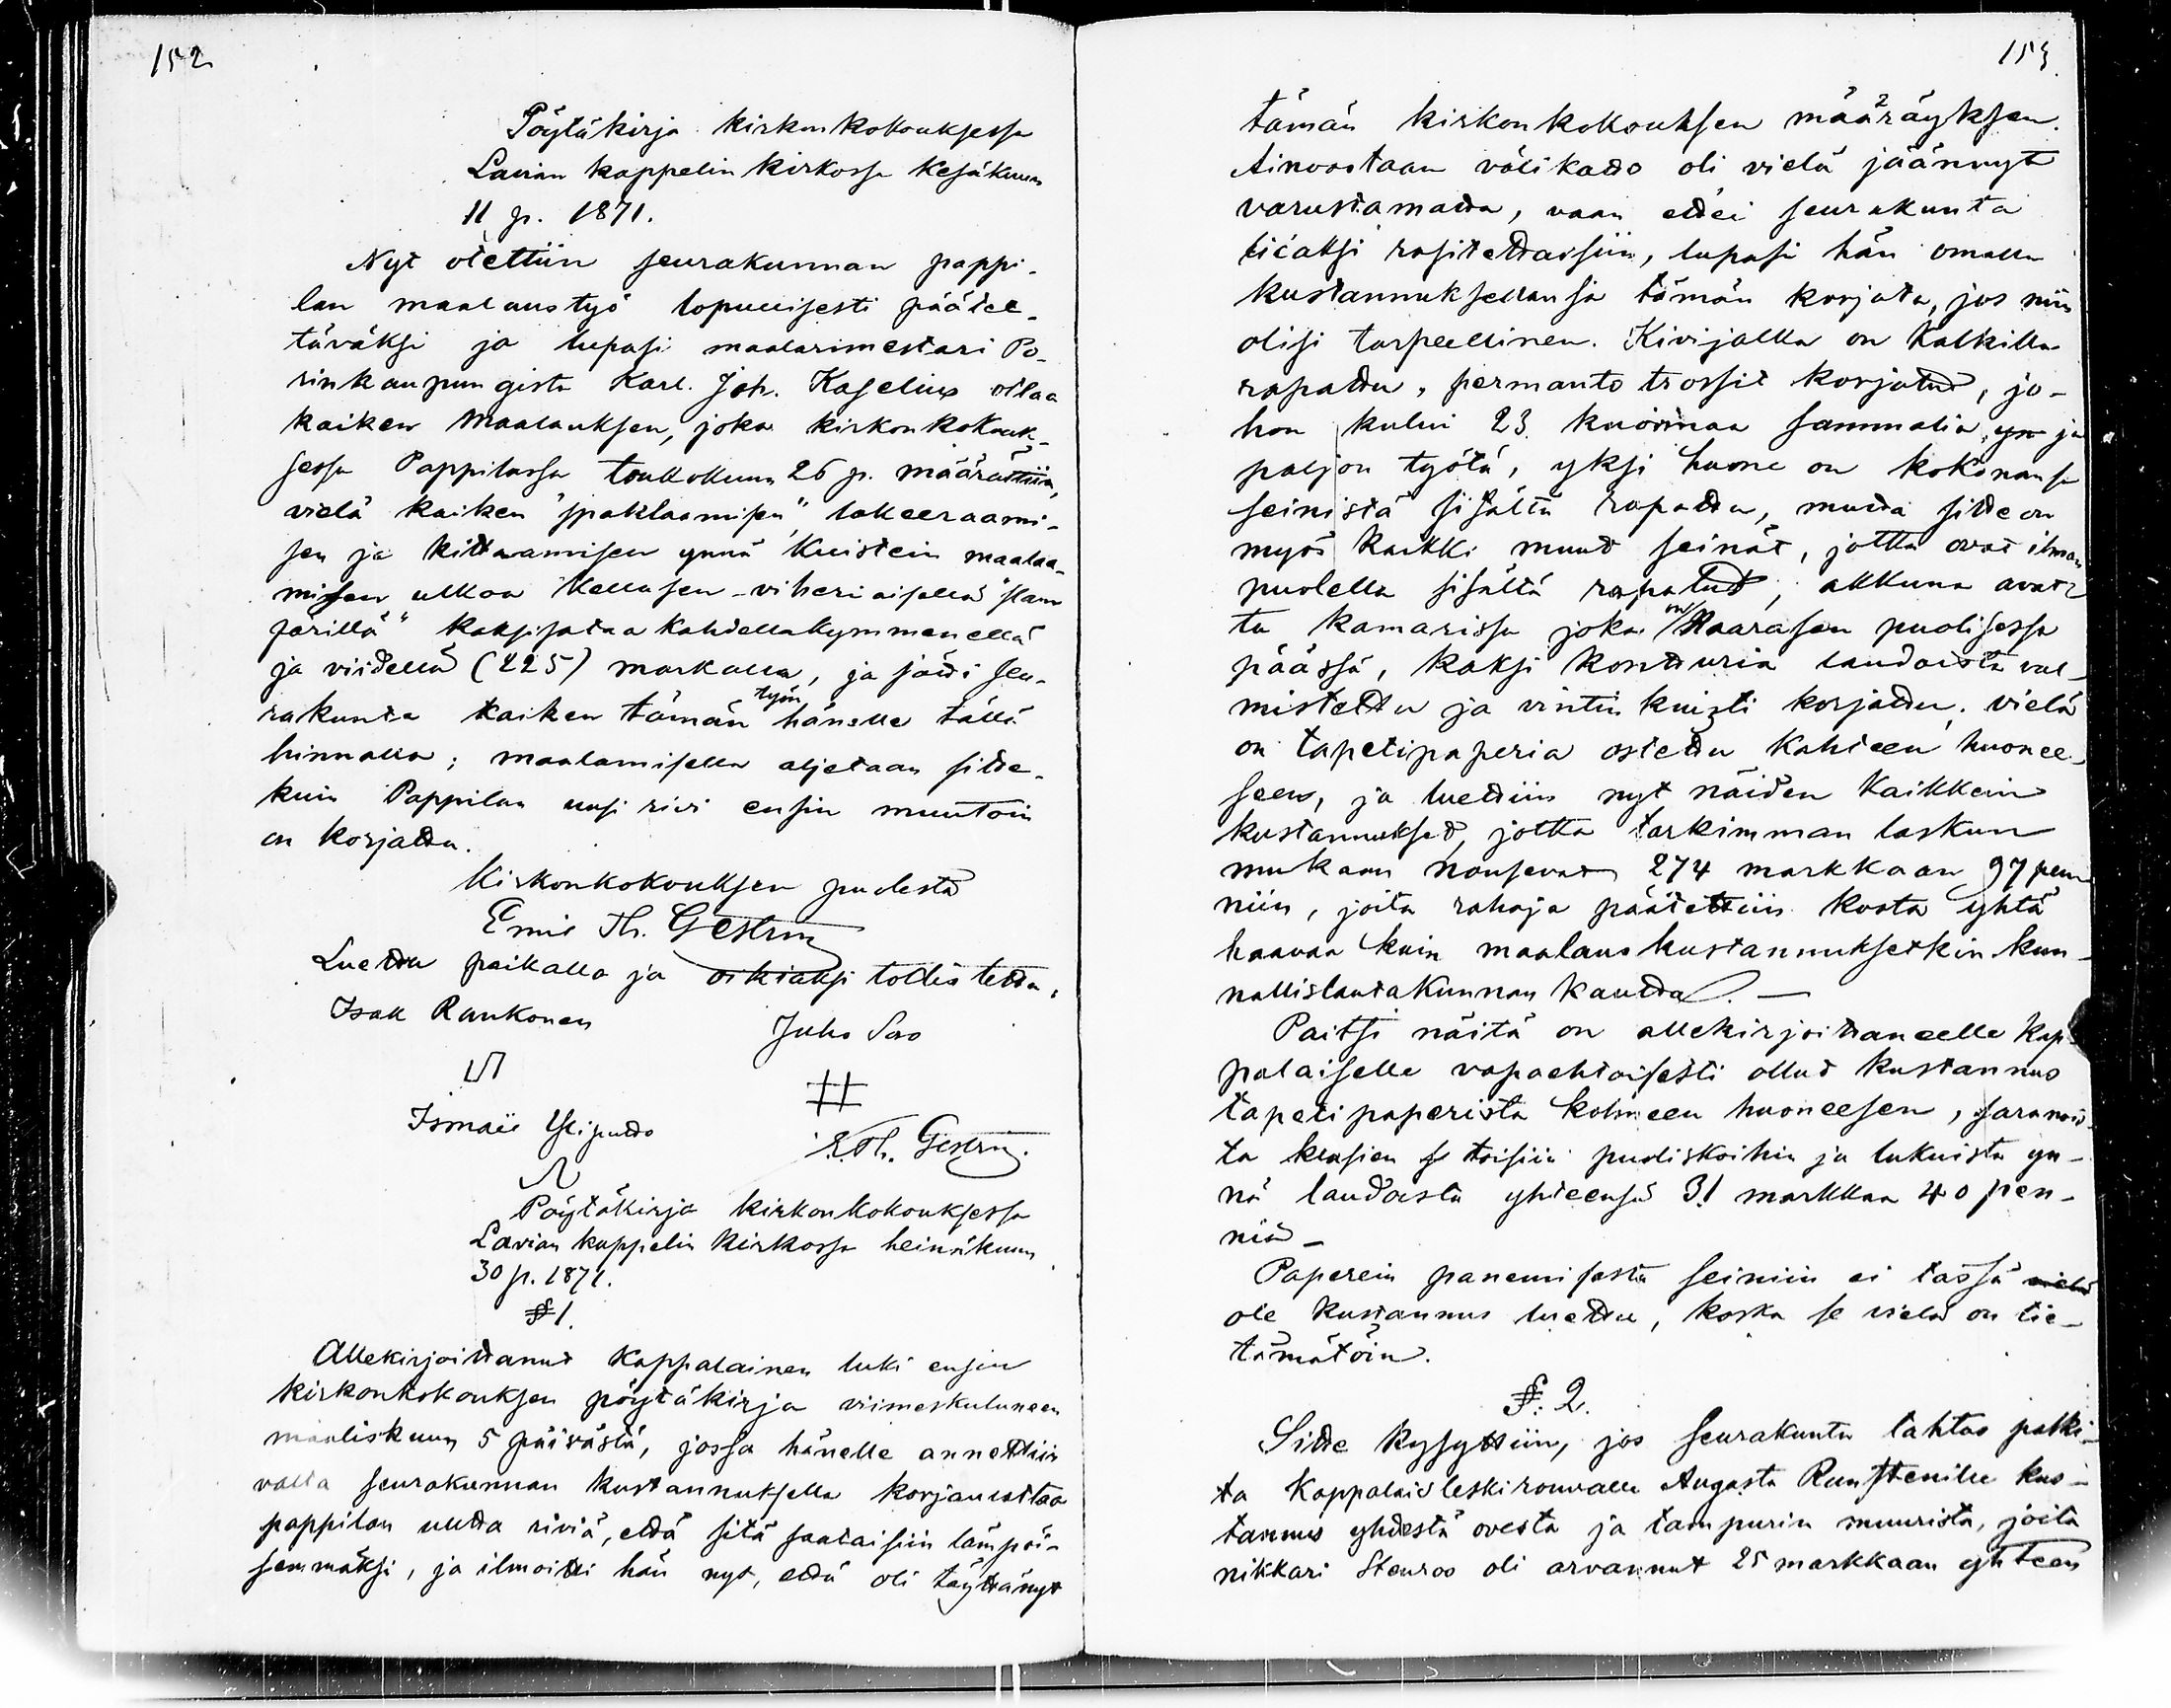 152
Pöytäkirja kirkonkokouksessa
Lavian kappelin kirkossa Kesäkuun
11 p. 1871.
Nyt otettiin seurakunnan pappi-
lan maalaustyö lopullisesti päätet-
täväksi ja lupasi maalarimestari Po-
rinkaupungista Karl. Joh. Kaselius ottaa
kaiken Maalauksen, joka kirkonkokouk-
sessa Pappilassa toukokuun 26 p. määrättiin,
vielä kaiken "spaklaamisen", lakeeraami-
sen ja kittaamisen ynnä Kuistein maalaa-
misen ulkoa Kellasen-viheriaisellä
färillä" kaksisataa kahdellakymmenellä
ja viidellä (225) markalla, ja jätti seu-
rakunta kaiken tämän työn hänelle tällä
hinnalla; maalamisella aljetaan sitte-
kuin Pappilan uusi rivi ensin muutoin
on korjattu.
Kirkonkokouksen puolesta
Emil Th. Gestrin
Luettu paikalla ja oikiaksi todistettu,
Isak Raukonen
Juho Savo
Ismael Ylipuddo
E. Th. Gestrin.
Pöytäkirja kirkonkokouksessa
Lavian kappelin Kirkossa heinäkuun
30 p. 1871.
§ 1.
Allekirjoittanut Kappalainen luki ensin
kirkonkokouksen pöytäkirja viimeskuluneen
maaliskuun 5 päivästä, jossa hänelle annettiin
valta seurakunnan kustannuksella korjauttaa
pappilan uutta riviä, että sitä saataisiin lämpöi-
semmäksi, ja ilmoitti hän nyt, että oli täyttänyt
153
tämän kirkonkokouksen määräyksen.
Ainoastaan välikatto oli vielä jäännyt
varustamatta, vaan ettei seurakunta
liiaksi rasitettaisiin, lupasi hän omalla
kustannuksellansa tämän korjata, jos niin
olisi tarpeellinen. Kivijalka on kalkilla
rapattu, permanto trossit korjatut, jo-
hon kului 23 kuormaa sammalia yn ja
paljon työtä, yksi huone on kokonansa
seinistä sisältä rapattu, mutta sitte on
myös kaikki muut seinät, jotka ovat ilman
puolella sisältä rapatut, akkuna avat-
tu kamarissa joka on Haarasen puolisessa
päässä, kaksi kontturia laudoista val-
mistettu ja vintin kuisti korjattu, vielä
on tapetipaperia ostettu kahteen huonee-
seen, ja luettiin nyt näiden kaikkein
kustannukset, jotka tarkimman laskun
mukaan nousevat 274 markkaan 97 pen-
niin, joita rahoja päätettiin koota yhtä
haavaa kuin maalauskustannuksetkin kun-
nallislautakunnan kautta. —
Paitsi näitä on allekirjoittaneelle Kap-
palaiselle vapaehtoisesti ollut kustannus
tapetipaperista kolmeen huoneesen, saranois-
ta klasien se toisiin puoliskoihin ja lukuista yn-
nä laudoista yhteensä 31 markkaa 40 pen-
niä —
Paperein panemisesta seiniin ei tässä vielä
ole kustannus luettu, koska se vielä on tie-
tämätöin.
§. 2.
Sitte kysyttiin, jos Seurakunta tahtoo palki-
ta Kappalaisleskirouvalle Augusta kus-
tannus yhdestä ovesta ja tampurin muurista, joita
nikkari Stenroo oli arvannut 25 markkaan yhteen